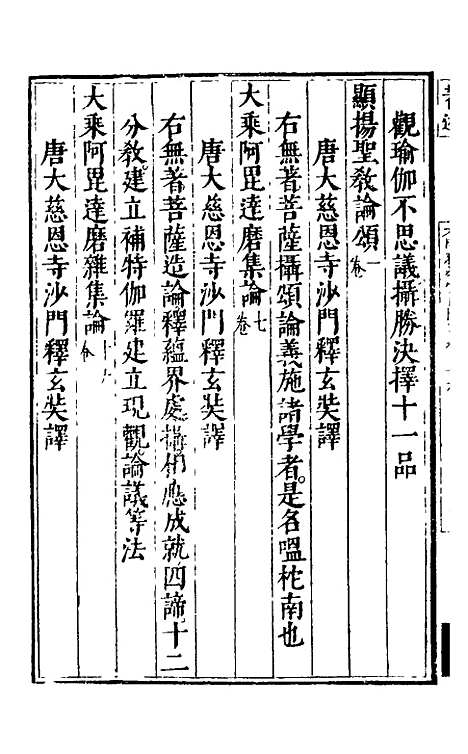 觀瑜伽不思議攝勝決擇十一品
顯揚聖教論頌一卷
唐大慈恩寺沙門釋玄奘譯
右無著菩薩攝頌論義施諸學者是名嗢柁南也
大乘阿毘達磨集論七卷
唐大慈恩寺沙門釋玄奘譯
右無著菩薩造論釋蘊界處攝相應成就四諦十二
分教建立補特伽羅建立現觀論議等法
大乘阿毘達磨雜集論十六卷
唐大慈恩寺沙門釋玄奘譯